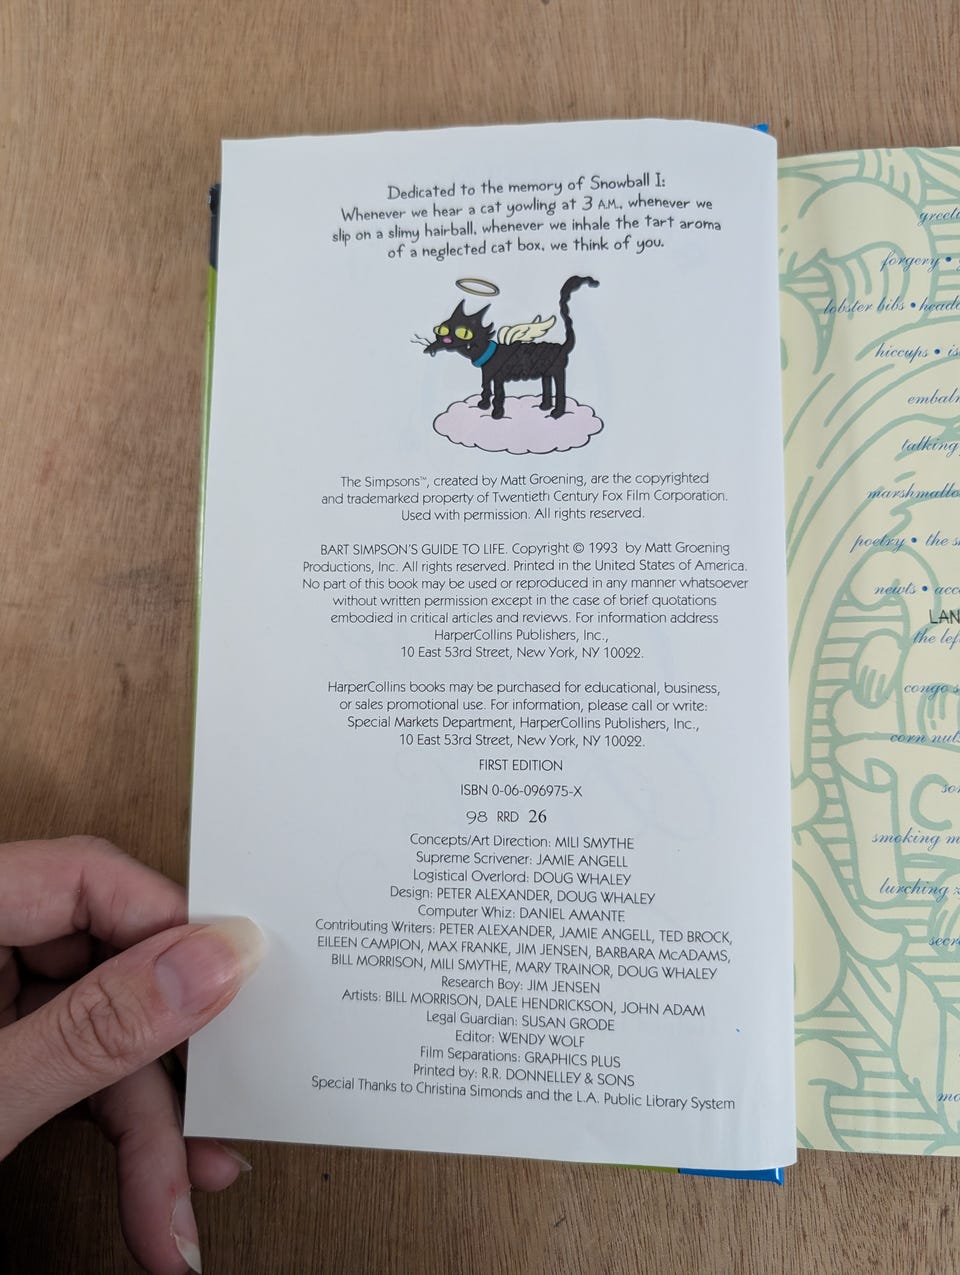 Dedicated to the memory of Snowball I:
Whenever we hear a cat yowling at 3 A.M., whenever we
slip on a slimy hairball, whenever we inhale the tart aroma
of a neglected cat box, we think of you.
The Simpsons™, created by Matt Groening, are the copyrighted
and trademarked property of Twentieth Century Fox Film Corporation.
Used with permission. All rights reserved.
BART SIMPSON'S GUIDE TO LIFE. Copyright © 1993 by Matt Groening
Productions, Inc. All rights reserved. Printed in the United States of America.
No part of this book may be used or reproduced in any manner whatsoever
without written permission except in the case of brief quotations
embodied in critical articles and reviews. For information address
HarperCollins Publishers, Inc.,
10 East 53rd Street, New York, NY 10022.
HarperCollins books may be purchased for educational, business,
or sales promotional use. For information, please call or write:
Special Markets Department, HarperCollins Publishers, Inc.,
10 East 53rd Street, New York, NY 10022.
FIRST EDITION
ISBN 0-06-096975-X
98 RRD 26
Concepts/Art Direction: MILI SMYTHE
Supreme Scrivener: JAMIE ANGELL
Logistical Overlord: DOUG WHALEY
Design: PETER ALEXANDER, DOUG WHALEY
Computer Whiz: DANIEL AMANTE
Contributing Writers: PETER ALEXANDER, JAMIE ANGELL, TED BROCK,
EILEEN CAMPION, MAX FRANKE, JIM JENSEN, BARBARA McADAMS,
BILL MORRISON, MILI SMYTHE, MARY TRAINOR, DOUG WHALEY
Research Boy: JIM JENSEN
Artists: BILL MORRISON, DALE HENDRICKSON, JOHN ADAM
Legal Guardian: SUSAN GRODE
Editor: WENDY WOLF
Film Separations: GRAPHICS PLUS
Printed by: R.R. DONNELLEY & SONS
Special Thanks to Christina Simonds and the L.A. Public Library System
forgery •
lobster bibs •
hiccups •
talking
poetry • the
newts •
the
congo
corn
smoking
lurching